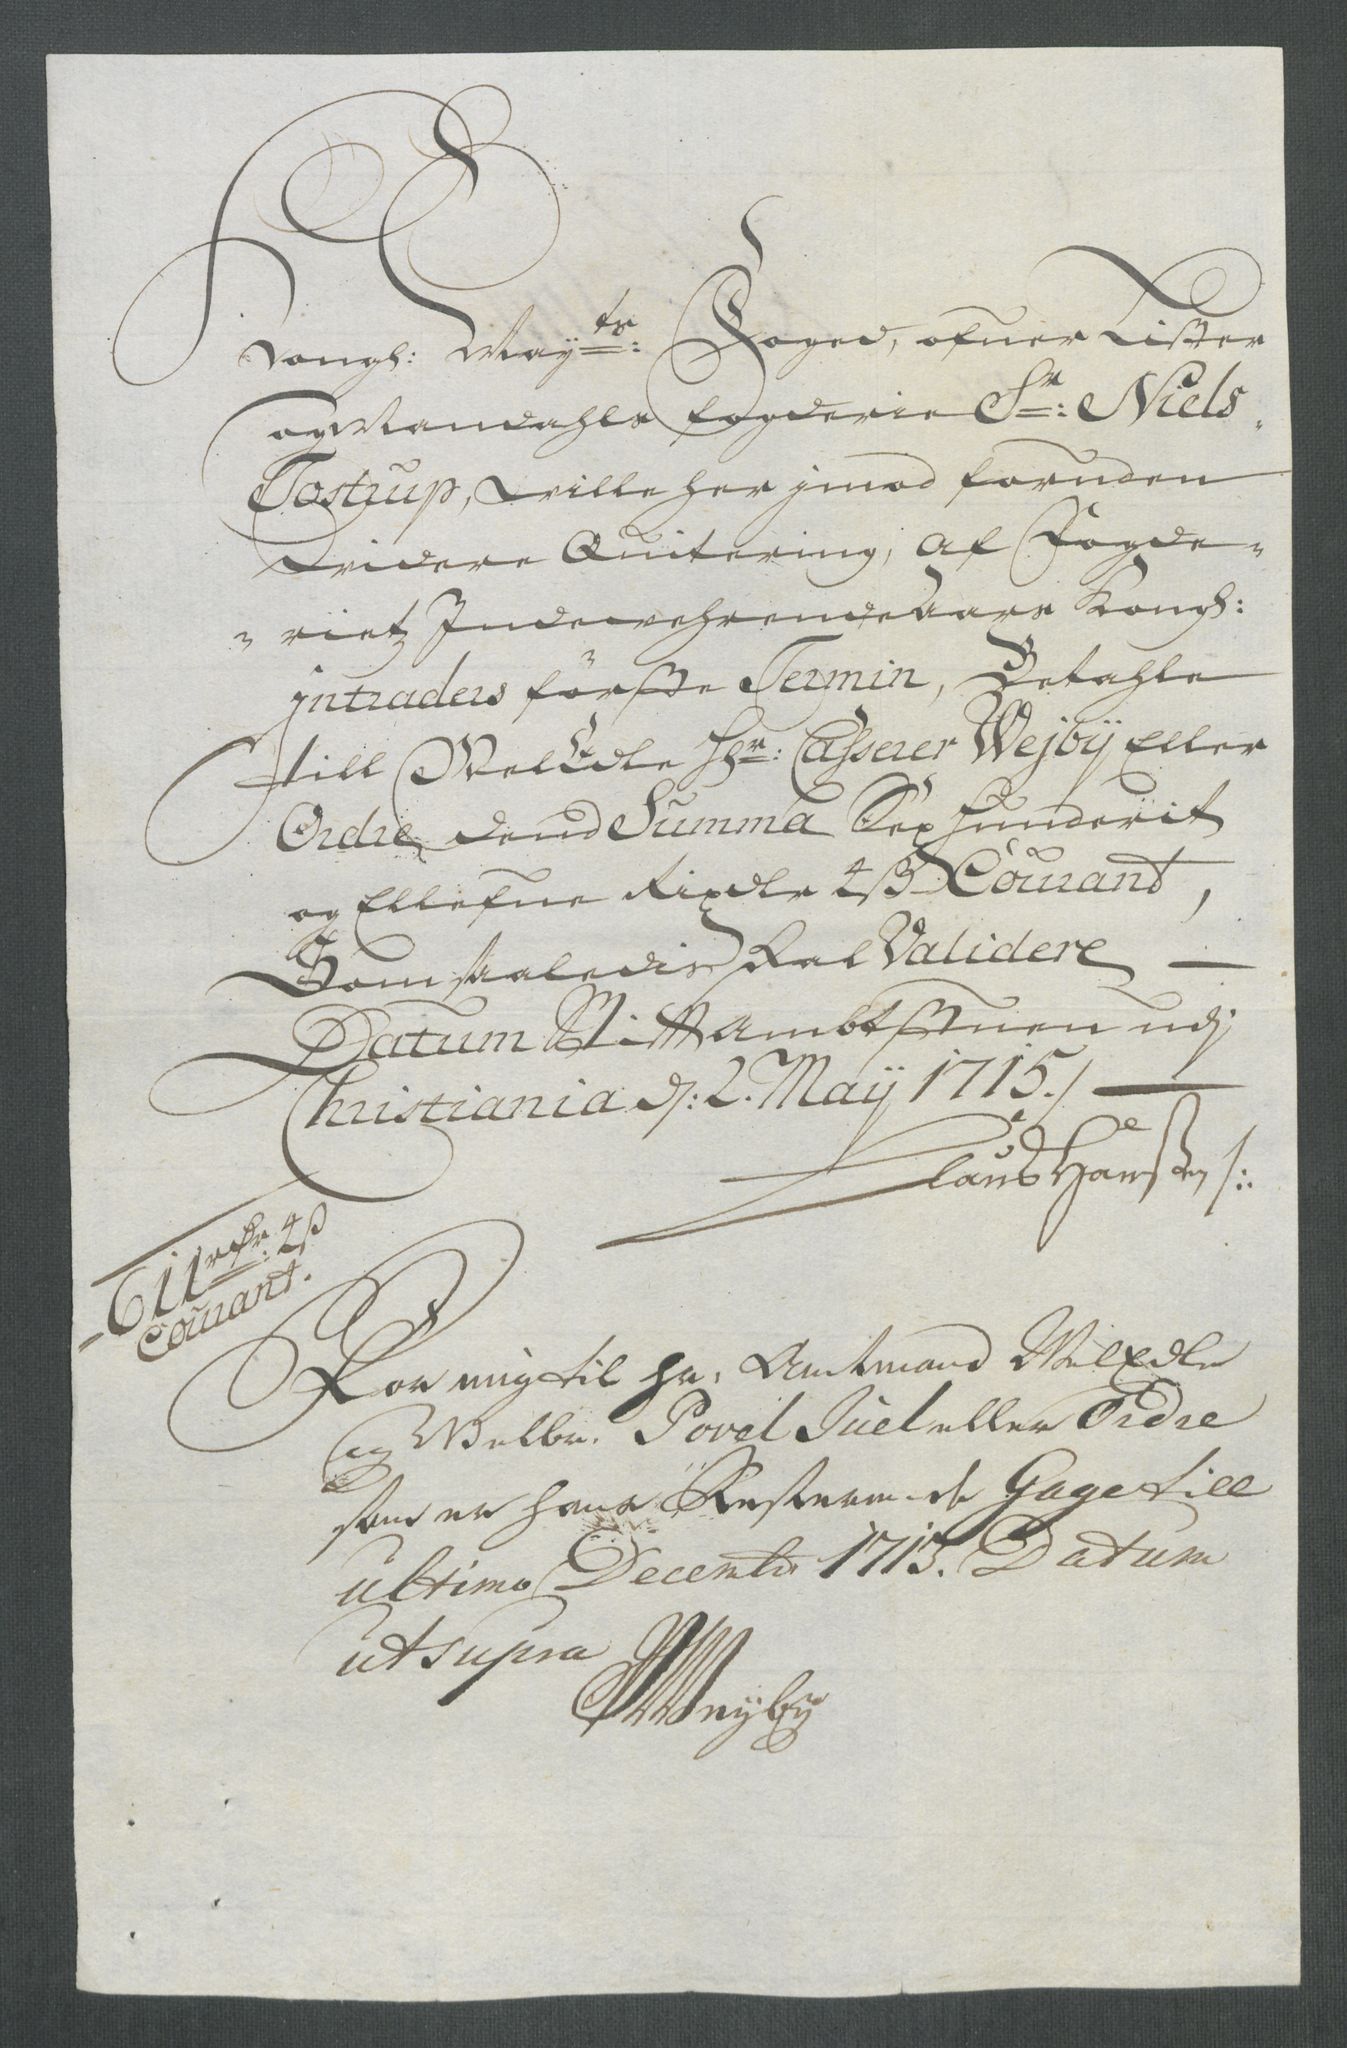 Kongl: Maytz: Foged, ofuer Lister
og Mandahls fogderie Sr: Niels
Tostrup, wille her jmod foruden
widere Quitering, af Fogde-
rietz Indewehrende Aars Kongl:
jntraders förste Termin, Betahle
till WelEdle Hr: Casserer Wejbÿ Eller
Ordre, dend Summa Sex Hunderit
og Ellefue Rixdlr 4 ß Courant,
Som saaledis skal Validere
Datum StifftAmbtstuen udj
Christiania d: 2. Maÿ 1715./
Claus Hansen /:
611 rdr: 4 ß
Courant.
For mig til Hr. Amtmand WelEdle
og Welbr. Povel Juel eller Ordre
som er hans Resterende Gage till
ultimo Decembr 1713. Datum
ut supra
Weyby